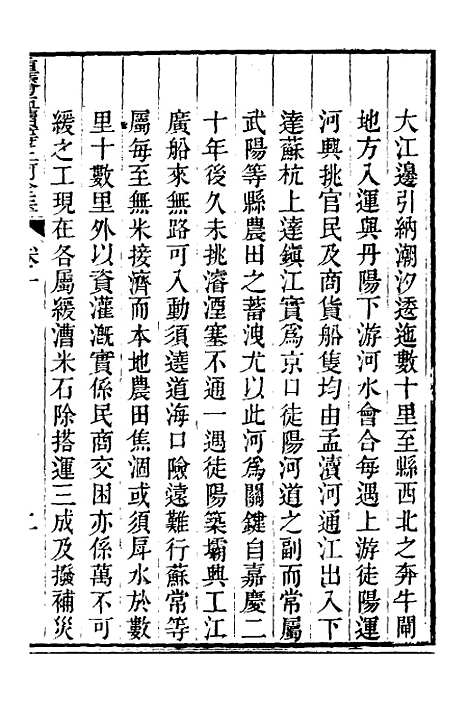 大江邊引納潮汐透迤數十里至縣西北之奔牛閘
地方入運與丹陽下游河水會合每遇上游徒陽運
河興挑官民及商貨船隻均由孟瀆河通江出入下
達蘇杭上達鎭江實爲京口徒陽河道之副而常屬
武陽等縣農田之蓄洩尤以此河爲關鍵自嘉慶二
十年後久未挑濬湮塞不通一遇徒陽築壩興工江
廣船來無路可入動須遶道海口險遠難行蘇常等
屬每至無米接濟而本地農田焦涸或須戽水於數
里十數里外以資灌漑實係民商交困亦係萬不可
緩之工現在各屬緩漕米石除搭運三成及撥補災
卷一